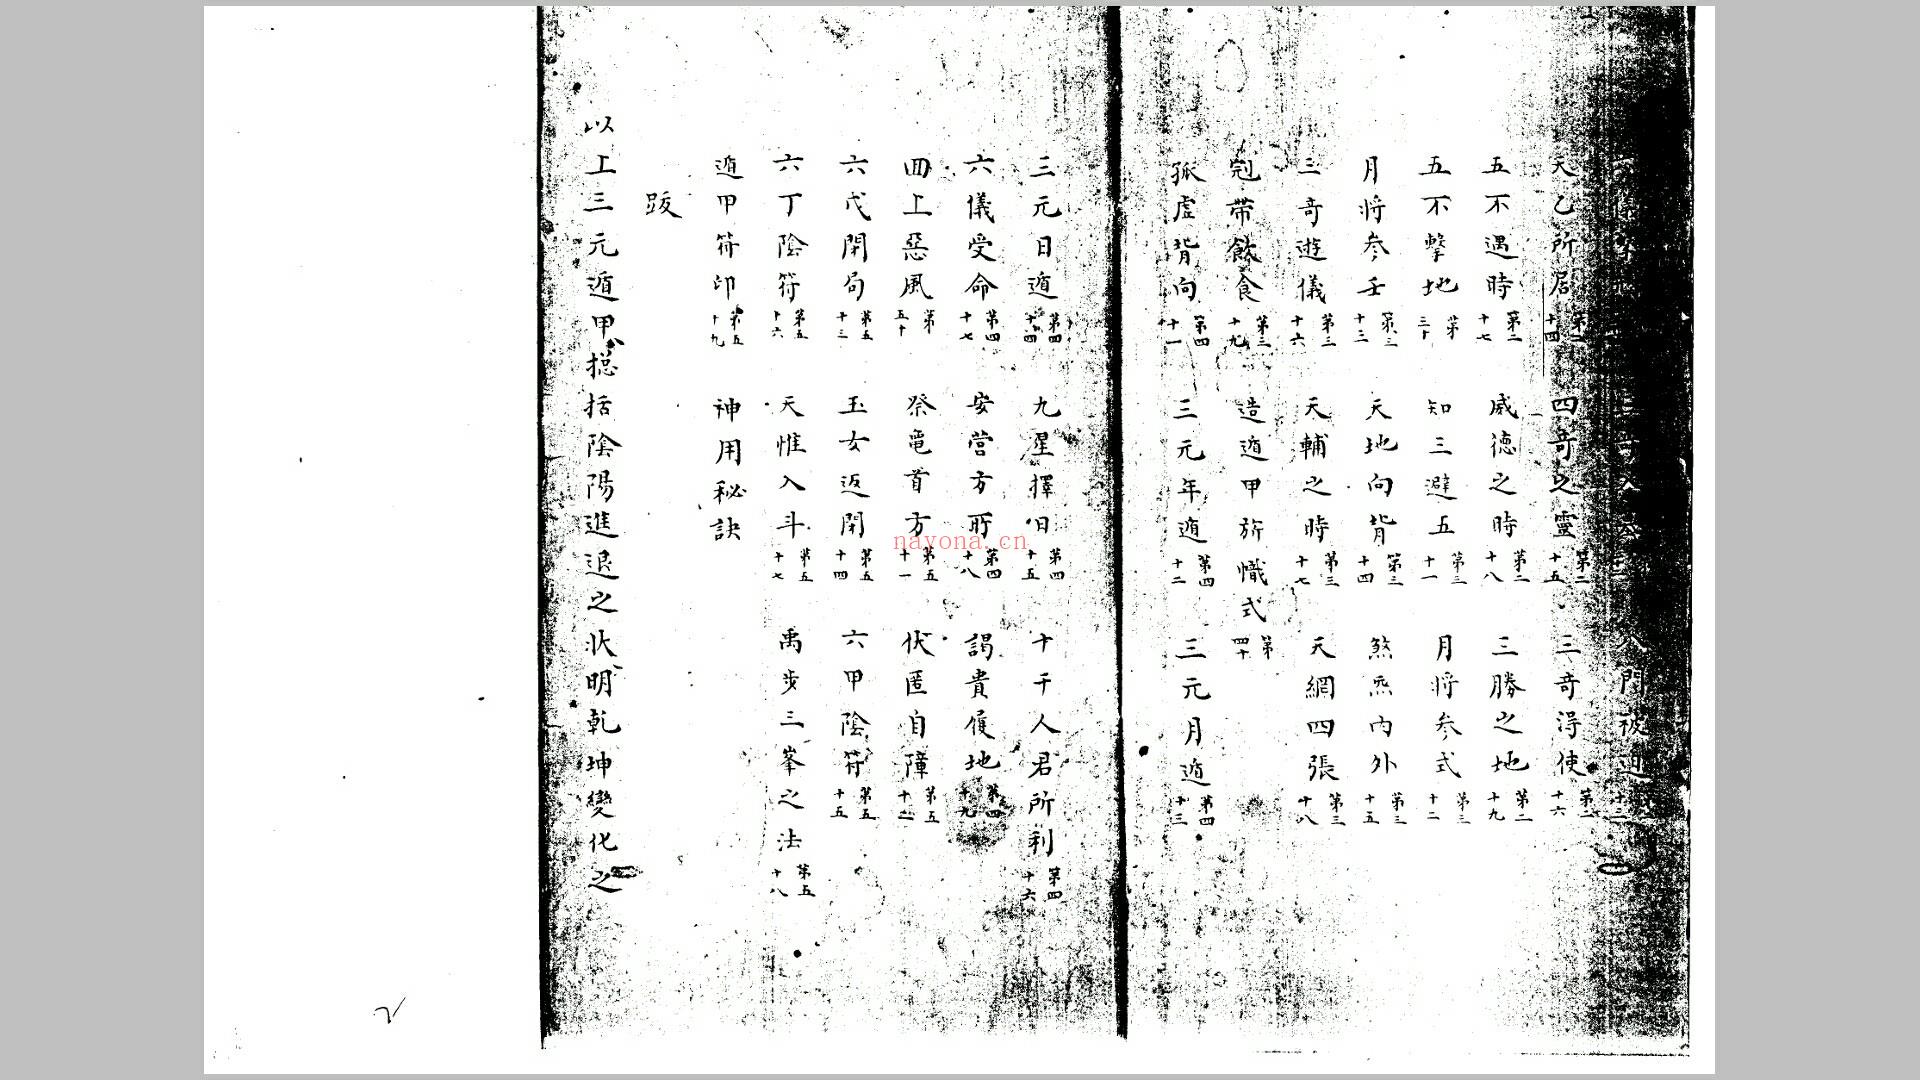 八門被迫
天乙所居 第二十四 四奇之靈 第二十五 三奇得使 第二十六
五不遇時 第二十七 威德之時 第二十八 三勝之地 第二十九
五不擊地 第三十 知三避五 第三十一 月將叅式 第三十二
月將叅壬 第三十三 天地向背 第三十四 煞炁內外 第三十五
三竒遊儀 第三十六 天輔之時 第三十七 天網四張 第三十八
冠帶飲食 第三十九 造遁甲旂幟式 第四十
孤虛背向 第四十一 三元年遁 第四十二 三元月遁 第四十三
三元日遁 第四十四 九星擇日 第四十五 十干人君所利 第四十六
六儀受命 第四十七 安營方所 第四十八 謁貴履地 第四十九
四上惡風 第五十 祭電首方 第五十一 伏匿自障 第五十二
六戊閉局 第五十三 玉女返閉 第五十四 六甲陰符 第五十五
六丁陰符 第五十六 天惟入斗 第五十七 禹步三峯之法 第五十八
遁甲符印 第五十九 神用秘訣
跋
以上三元遁甲揔括陰陽進退之狀明乾坤變化之
nayona.cn